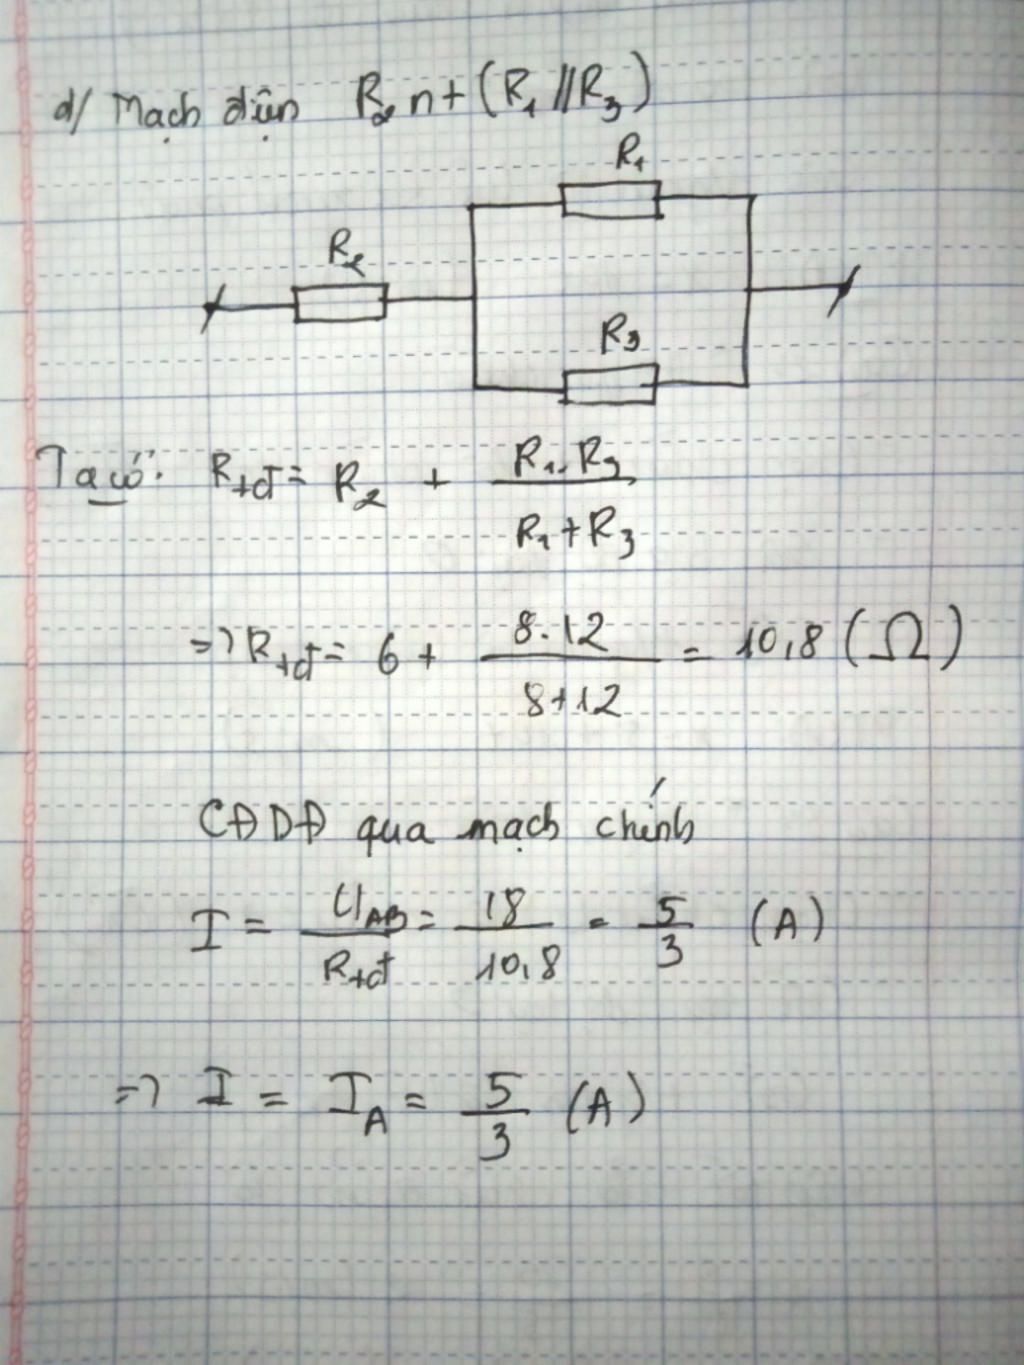 d/ Mạch điện R₂ nt (R₁ // R₃)
R₁
R₂
R₃
Ta có: Rtđ = R₂ + R₁.R₃ / R₁ + R₃
=> Rtđ = 6 + 8.12 / 8+12 = 10,8 (Ω)
CĐDĐ qua mạch chính
I = UAB / Rtđ = 18 / 10,8 = 5/3 (A)
=> I = IA = 5/3 (A)